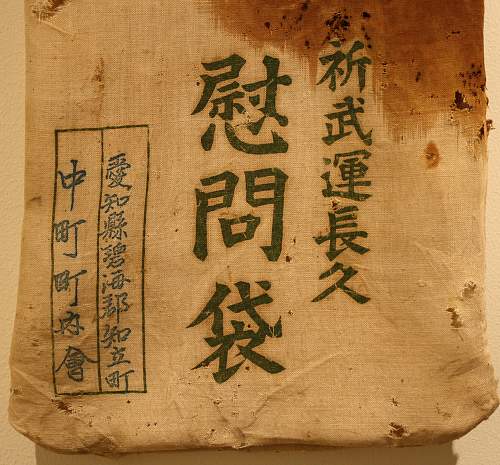 祈武運長久
慰問袋
愛知縣碧海郡知立町
中町町内會